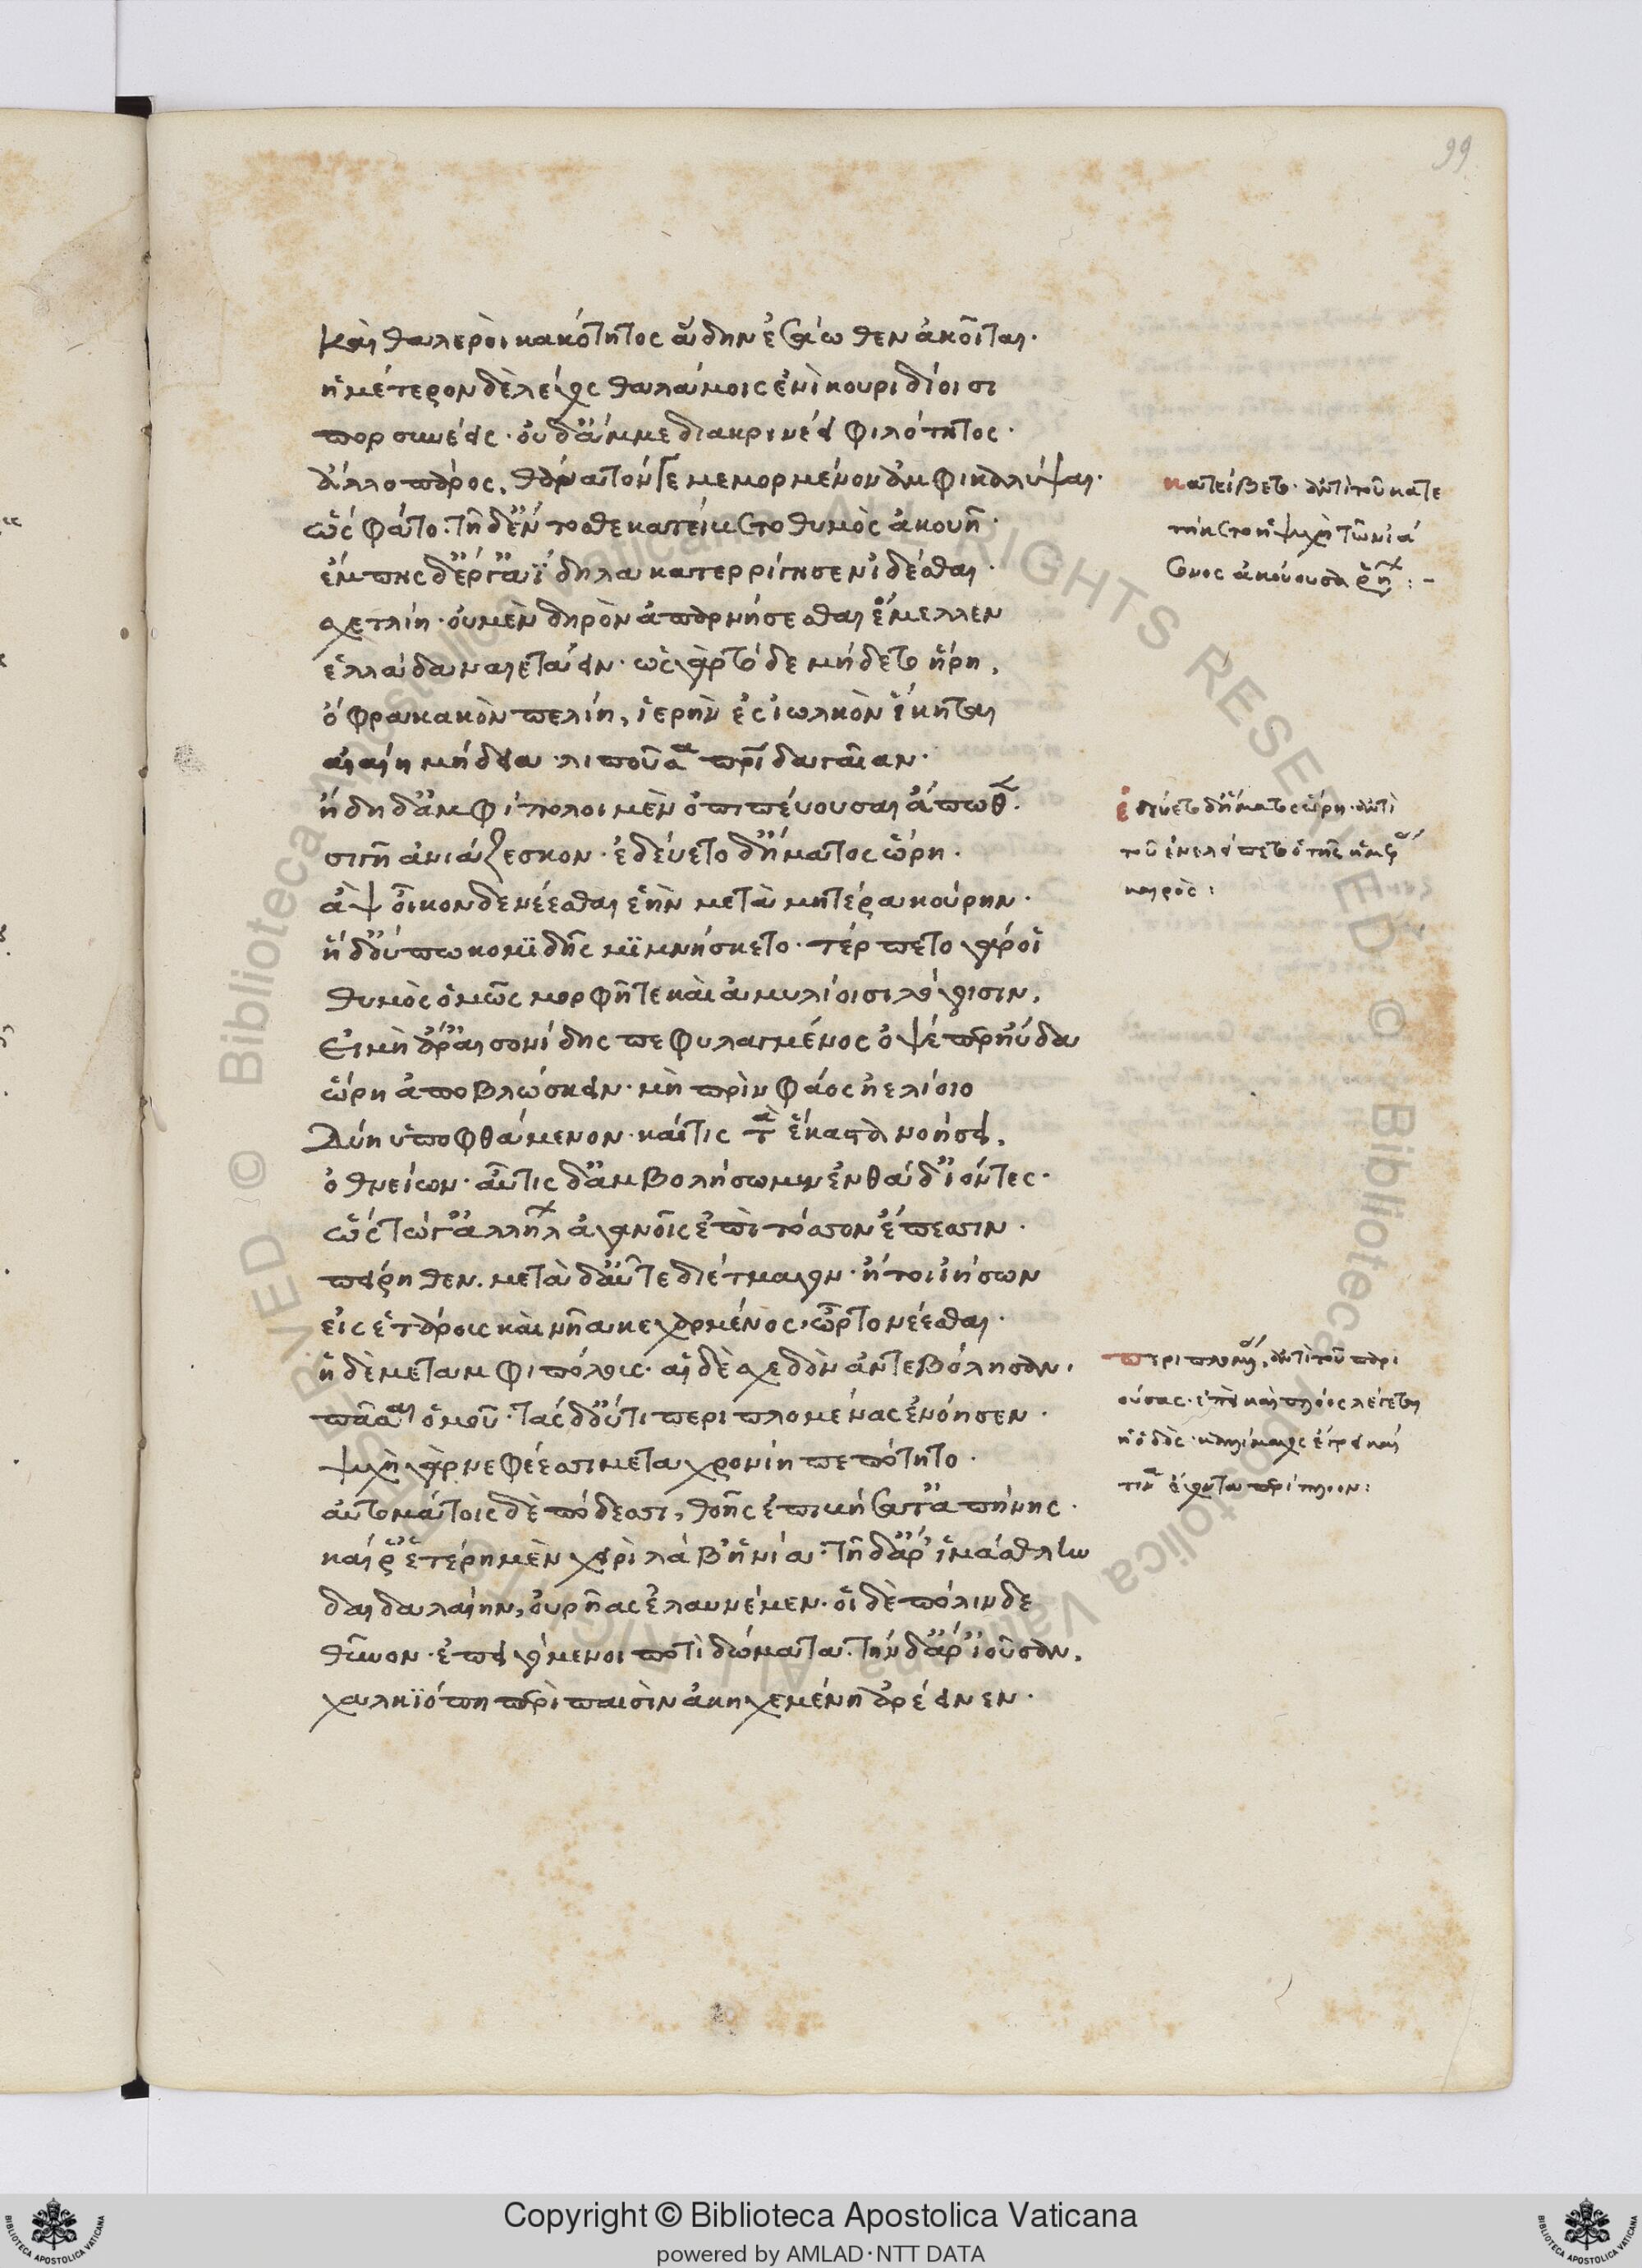 99
καὶ θαλεροὶ κακότητος ἄδην ἐσάωθεν ἀκοῖται.
ἡμέτερον δὲ λέχος θαλάμοις ἐνὶ κουριδίοισι
πορσυνέεις· οὐδ' ἄμμε διακρινέει φιλότητος.
ἄλλο πάρος, θάνατόν γε μεμορμένον ἀμφικαλύψαι.
ὣς φάτο· τῇ δ' ἔντοσθε κατείβετο θυμὸς ἀκουῇ.
ἔμπης δ' ἔργ' ἀΐδηλα κατερρίγησεν ἰδέσθαι.
σχετλίη· οὐ μὲν δηρὸν ἀπαρνήσεσθαι ἔμελλεν
ἑλλάδα ναιετάειν· ὣς γὰρ τόδε μήδετο ἥρη,
ὄφρα κακὸν πελίῃ, ἱερὴν ἐς ἰωλκὸν ἵκηται
αἰαίη μήδεια λιποῦσα πατρίδα γαῖαν.
ἤδη δ' ἀμφίπολοι μὲν ὀπιπεύουσαι ἄπωθεν
σιγῇ ἀνιάζεσκον· ἐδεύετο δ' ἤματος ὥρη.
ἂψ οἶκόνδε νέεσθαι ἑὴν μετὰ μητέρα κούρην.
ἡ δ' οὔπω κομιδῆς μιμνήσκετο· τέρπετο γάρ οἱ
θυμὸς ὁμῶς μορφῇ τε καὶ αἱμυλίοισι λόγοισιν,
εἰ μὴ ἄρ' αἰσονίδης πεφυλαγμένος ὀψέ περ ηὔδα
ὥρη ἀποβλώσκειν· μὴ πρὶν φάος ἠελίοιο
δύῃ ὑποφθάμενον· καί τις τὰ ἕκαστα νοήσει,
ὀθνείων· αὖτις δ' ἀμβολήσωμεν ἐνθάδ' ἰόντες.
ὣς τώγ' ἀλλήλων ἀγανοῖς ἐπὶ τόσσον ἔπεσσιν.
πείρηθεν. μετὰ δ' αὖτε διέτμαγεν· ἤτοι ἰήσων
εἰς ἑτάρους καὶ νῆα κεχαρμένος ὦρτο νέεσθαι.
ἡ δὲ μετ' ἀμφιπόλους· αἱ δὲ σχεδὸν ἀντεβόλησαν,
πᾶσαι ὁμοῦ· τὰς δ' οὔτι περιπλομένας ἐνόησεν.
ψυχὴ γὰρ νεφέεσσι μεταχρονίη πεπότητο.
αὐτομάτοις δὲ πόδεσσι, θοῆς ἐπιβήσατ' ἀπήνης.
καί ῥ' ἑτέρῃ μὲν χειρὶ λάβ' ἡνία· τῇ δ' ἄρ' ἱμάσθλην
δαιδαλαίην, οὐρῆας ἐλαυνέμεν· οἱ δὲ πόλινδε
θῦνον· ἐπειγόμενοι ποτὶ δώματα. τὴν δ' ἄρ' ἰοῦσαν,
χαλκιόπη περὶ παισὶν ἀκηχεμένη ἐρέεινεν.
κατείβετο· ἀντὶ τοῦ κατε
τήκετο ἡ ψυχὴ τῶν ἰά
σονος ἀκούουσα
ἐδεύετο δ' ἤματος ὥρη· ἀντὶ
τοῦ ἐνελείπετο ὁ τῆς ἡμέρας
καιρός:
περιπλομένας, ἀντὶ τοῦ παρι
ούσας· ἐπεὶ καὶ πλόος λέγεται
ἡ ὁδός·
περίπλοον: